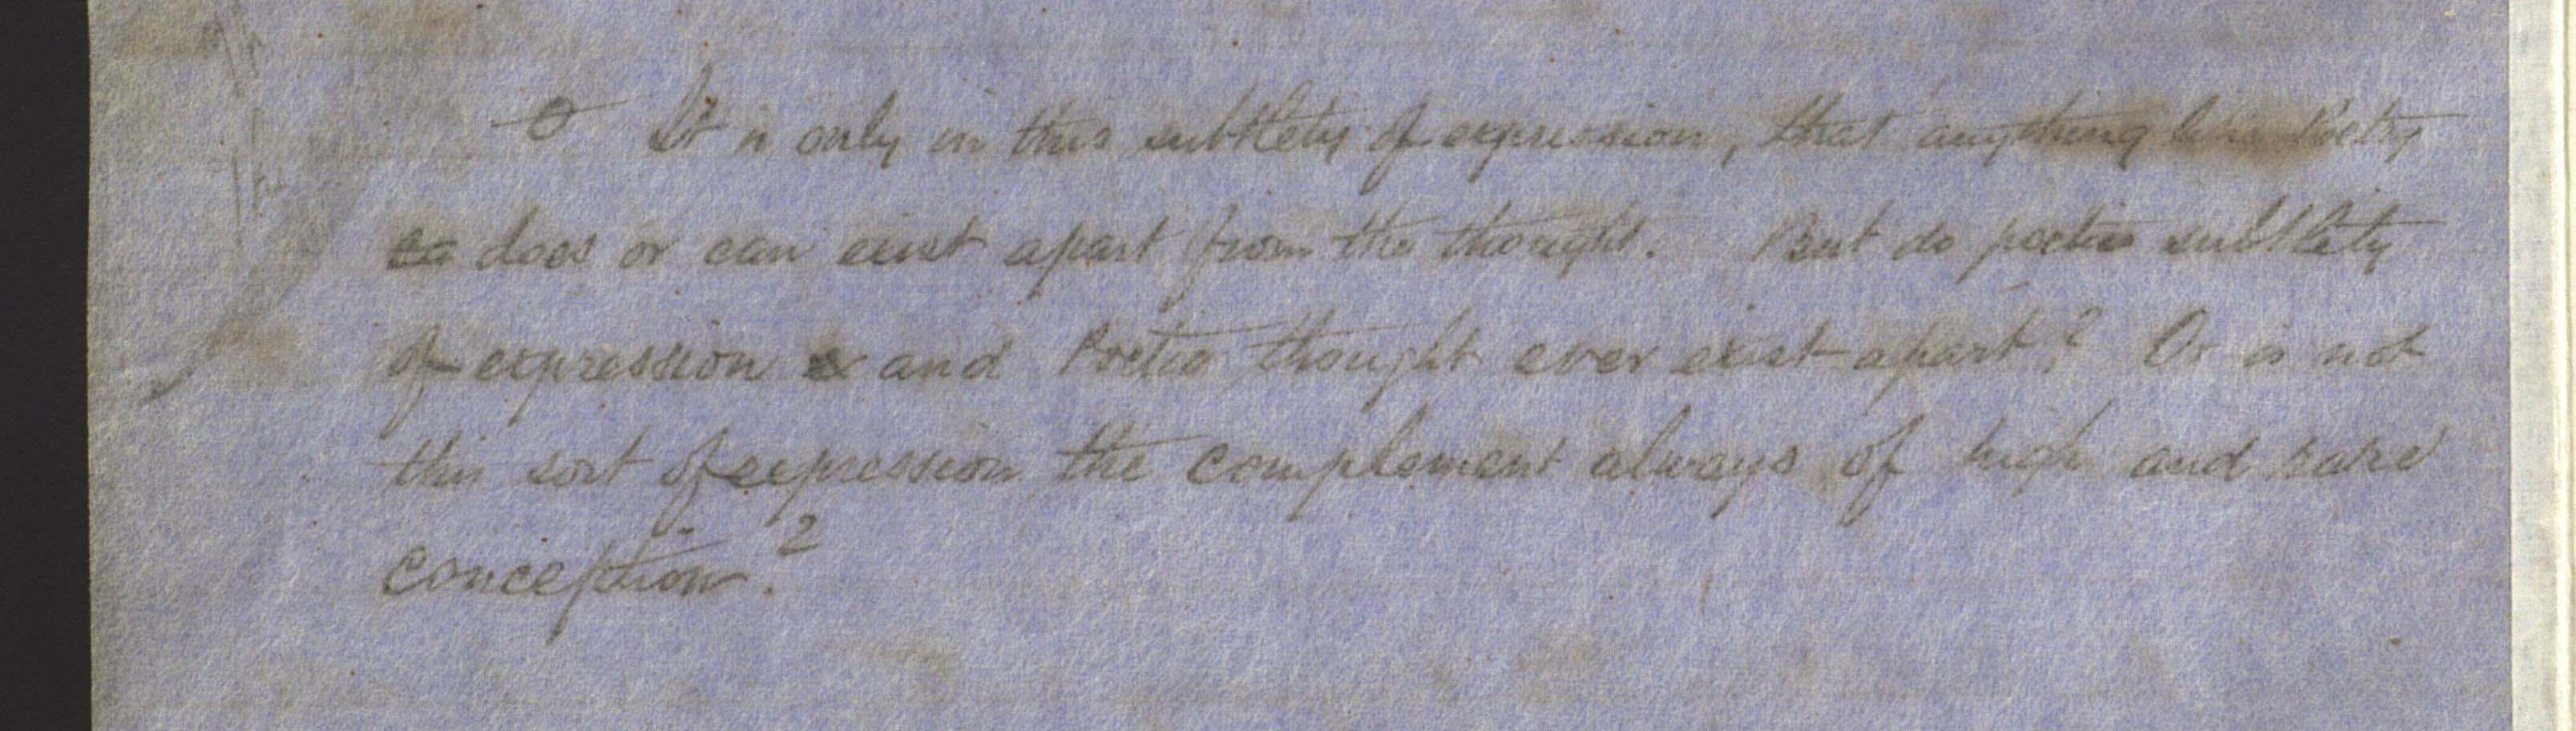 It is only in this subtlety of expression, that anything like Poetry
ca does or can exist apart from the thought. But do poetic subtlety
of expression & and Poetic thought ever exist apart? Or is not
this sort of expression the complement always of high and rare
conception?